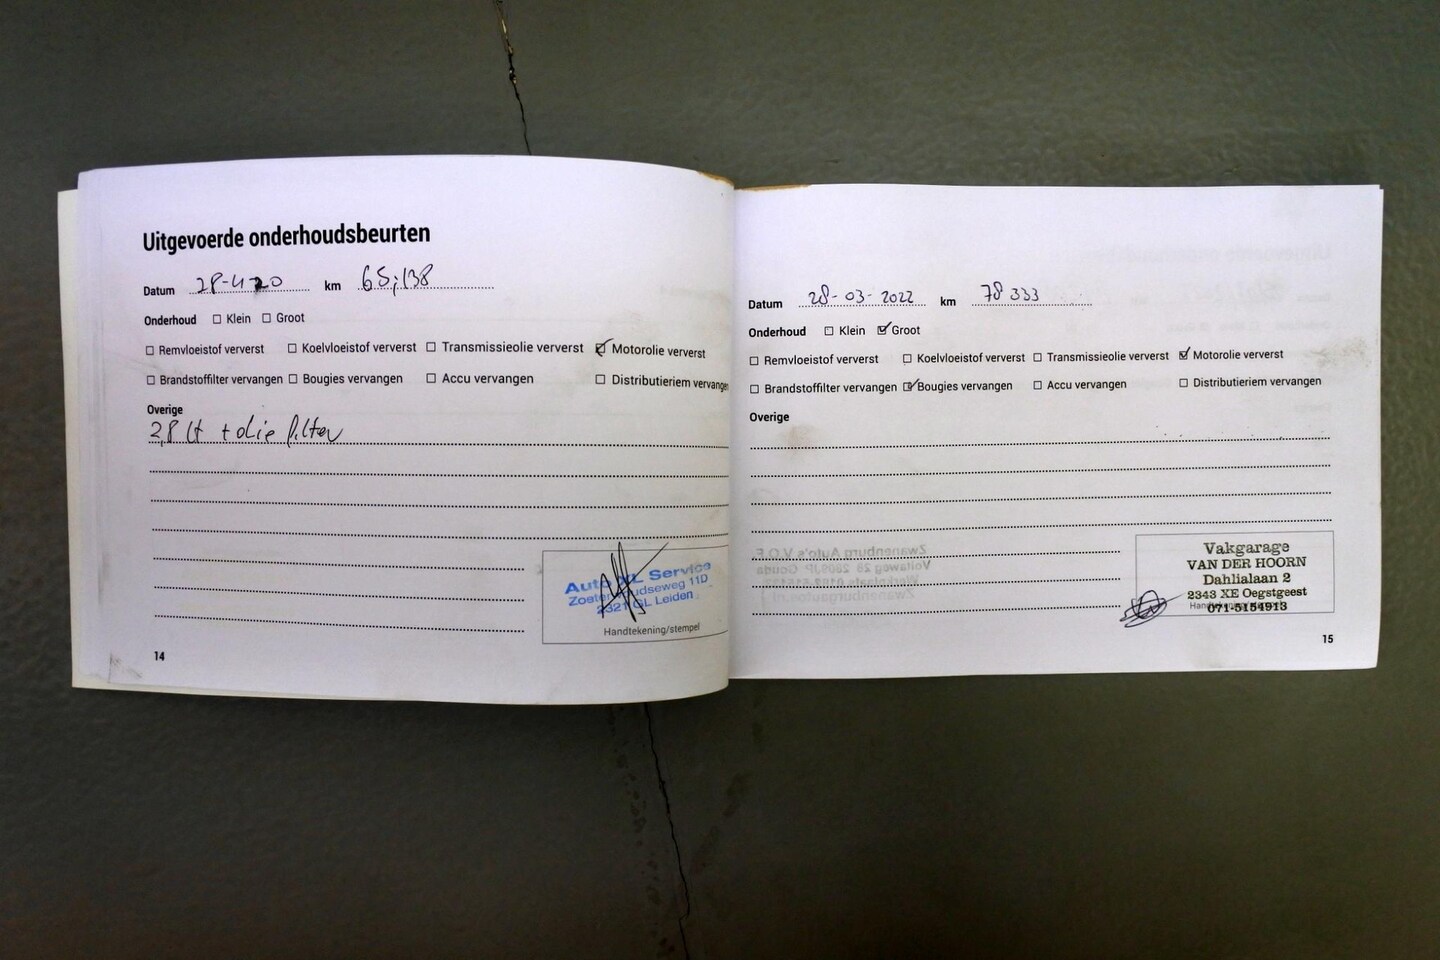 Uitgevoerde onderhoudsbeurten
Datum 28-4-20 km 65;138
Onderhoud ☐ Klein ☐ Groot
☐ Remvloeistof ververst ☐ Koelvloeistof ververst ☐ Transmissieolie ververst ☑ Motorolie ververst
☐ Brandstoffilter vervangen ☐ Bougies vervangen ☐ Accu vervangen ☐ Distributieriem vervangen
Overige
2,8 lt + olie filter
Auto NL Service
Zoeterwoudseweg 11D
2321 GL Leiden
Handtekening/stempel
14
Datum 28-03-2022 km 78333
Onderhoud ☐ Klein ☑ Groot
☐ Remvloeistof ververst ☐ Koelvloeistof ververst ☐ Transmissieolie ververst ☑ Motorolie ververst
☐ Brandstoffilter vervangen ☑ Bougies vervangen ☐ Accu vervangen ☐ Distributieriem vervangen
Overige
Vakgarage
VAN DER HOORN
Dahlialaan 2
2343 XE Oegstgeest
071-5154913
15